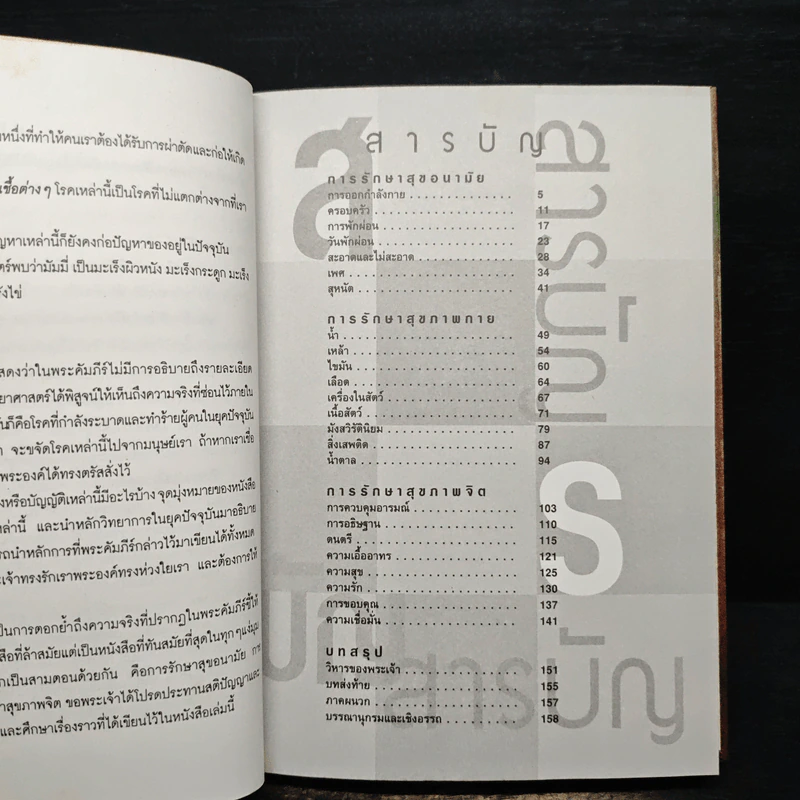 หนึ่งที่ทำให้คนเราต้องได้รับการผ่าตัดและก่อให้เกิด
เชื้อต่างๆ โรคเหล่านี้เป็นโรคที่ไม่แตกต่างจากที่เรา
ญหาเหล่านี้ก็ยังคงก่อปัญหาของอยู่ในปัจจุบัน
ตร์พบว่ามัมมี่ เป็นมะเร็งผิวหนัง มะเร็งกระดูก มะเร็ง
รังไข่
สดงว่าในพระคัมภีร์ไม่มีการอธิบายถึงรายละเอียด
ยาศาสตร์ได้พิสูจน์ให้เห็นถึงความจริงที่ซ่อนไว้ภายใน
ันก็คือโรคที่กำลังระบาดและทำร้ายผู้คนในยุคปัจจุบัน
จะขจัดโรคเหล่านี้ไปจากมนุษย์เรา ถ้าหากเราเชื่อ
พระองค์ได้ทรงตรัสสั่งไว้
งหรือบัญญัติเหล่านี้มีอะไรบ้าง จุดมุ่งหมายของหนังสือ
หล่านี้ และนำหลักวิทยาการในยุคปัจจุบันมาอธิบาย
รถนำหลักการที่พระคัมภีร์กล่าวไว้มาเขียนได้ทั้งหมด
ะเจ้าทรงรักเราพระองค์ทรงห่วงใยเรา และต้องการให้
เป็นการตอกย้ำถึงความจริงที่ปรากฏในพระคัมภีร์ชี้ให้
สือที่ล้าสมัยแต่เป็นหนังสือที่ทันสมัยที่สุดในทุกๆแง่มุม
กเป็นสามตอนด้วยกัน คือการรักษาสุขอนามัย การ
าสุขภาพจิต ขอพระเจ้าได้โปรดประทานสติปัญญาและ
และศึกษาเรื่องราวที่ได้เขียนไว้ในหนังสือเล่มนี้
สารบัญ
การรักษาสุขอนามัย
การออกกำลังกาย 5
ครอบครัว 11
การพักผ่อน 17
วันพักผ่อน 23
สะอาดและไม่สะอาด 28
เพศ 34
สุหนัต 41
การรักษาสุขภาพกาย
น้ำ 49
เหล้า 54
ไขมัน 60
เลือด 64
เครื่องในสัตว์ 67
เนื้อสัตว์ 71
มังสวิรัตินิยม 79
สิ่งเสพติด 87
น้ำตาล 94
การรักษาสุขภาพจิต
การควบคุมอารมณ์ 103
การอธิษฐาน 110
ดนตรี 115
ความเอื้ออาทร 121
ความสุข 125
ความรัก 130
การขอบคุณ 137
ความเชื่อมั่น 141
บทสรุป
วิหารของพระเจ้า 151
บทส่งท้าย 155
ภาคผนวก 157
บรรณานุกรมและเชิงอรรถ 158
ส
สารบัญ
ร
บัญ
สารบัญ